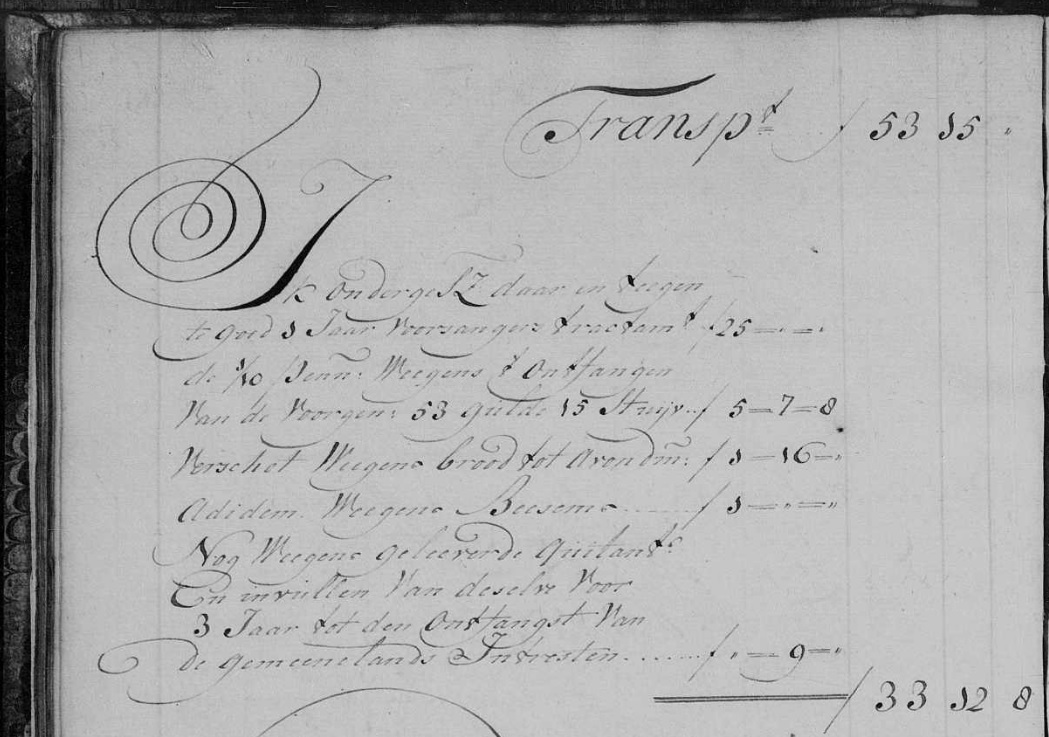 Transpt / 53 15 "
Ik onderges: daar en teegen
te goed 1 Jaar Voorsangers tractamt / 25 = " = "
de 1/10 penn: Weegens t ontfangen
Van de Voorgen: 53 gulde 15 Stuijv.. / 5 = 7 = 8
Verschot Weegens brood tot Avondm: / 1 = 16 = "
Adidem. Weegens Beesems ...... / 1 = " = "
Nog Weegens geleeverde quitants
En invullen Van deselve Voor
3 Jaar tot den Ontfangst Van
de gemeenelands Intresten ...... / " = 9 = "
/ 33 12 8